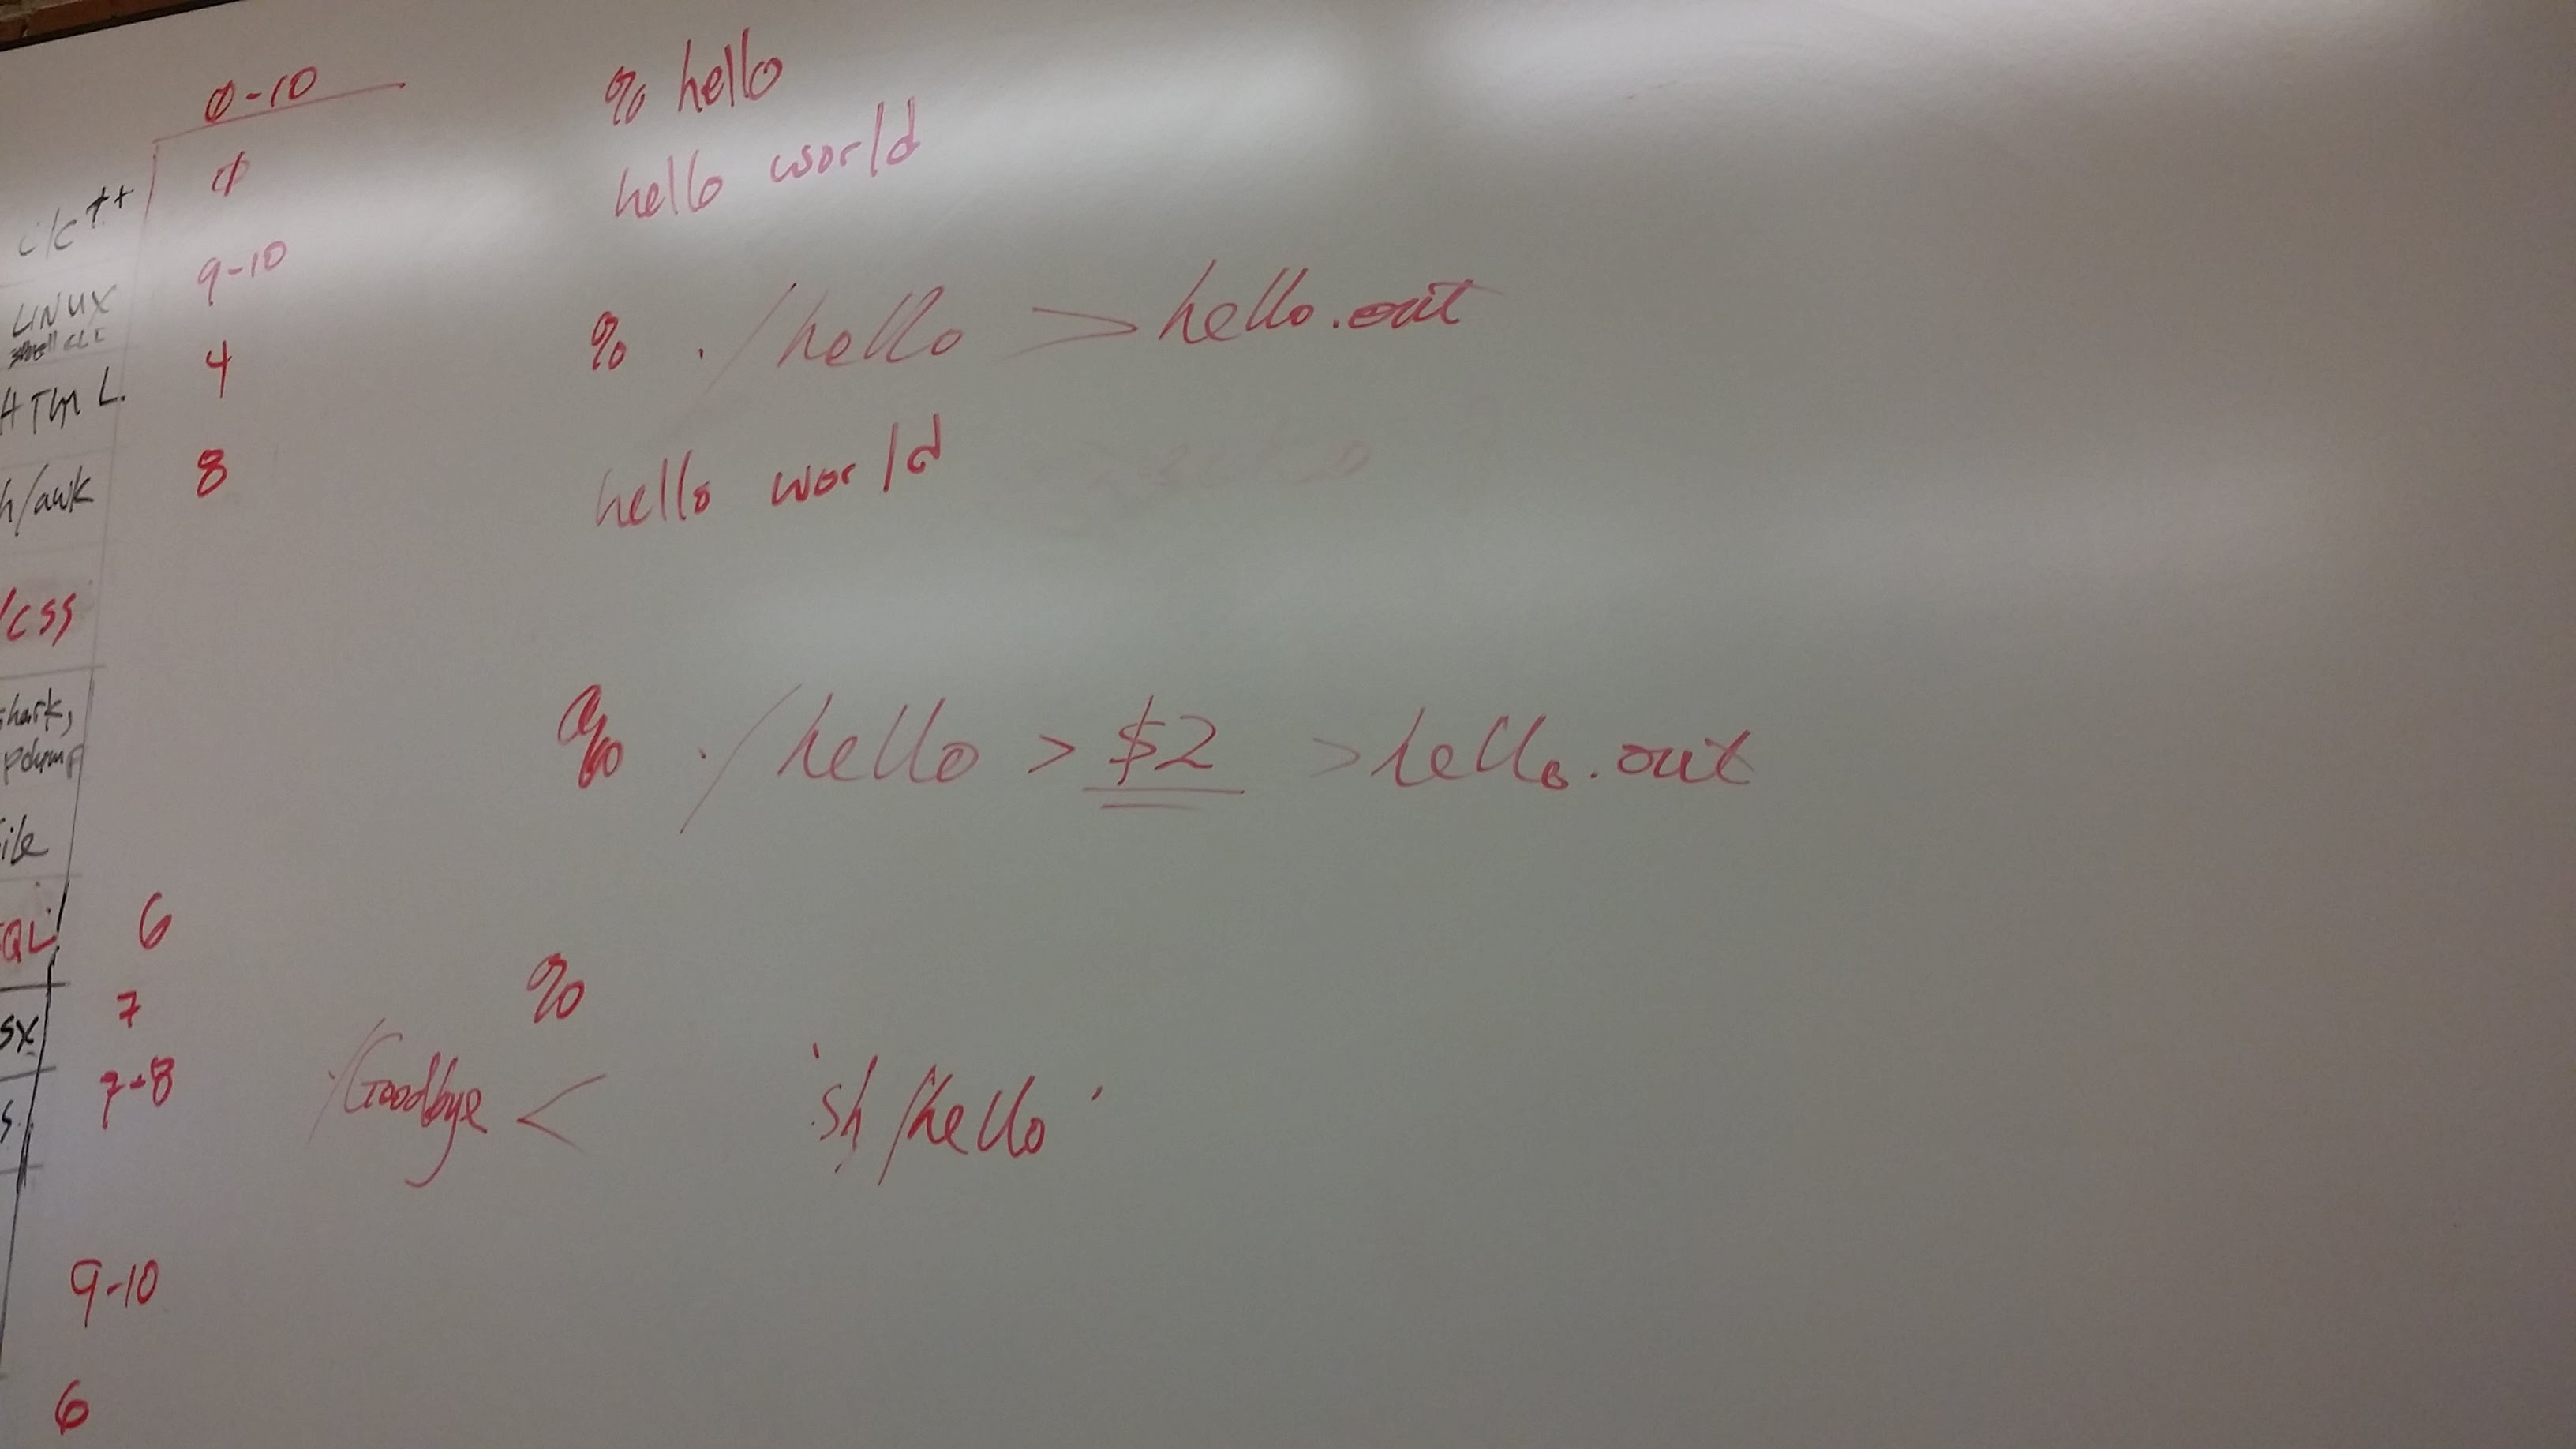 0-10
C/C++ 0
LINUX 9-10
shell CLI
HTML 4
h/awk 8
/CSS
shark,
pdump
ile
QL 6
sx 7
s. 7-8
9-10
6
% hello
hello world
% ./hello > hello.out
hello world
% ./hello > $2 > hello.out
%
./Goodbye < `sh /hello`